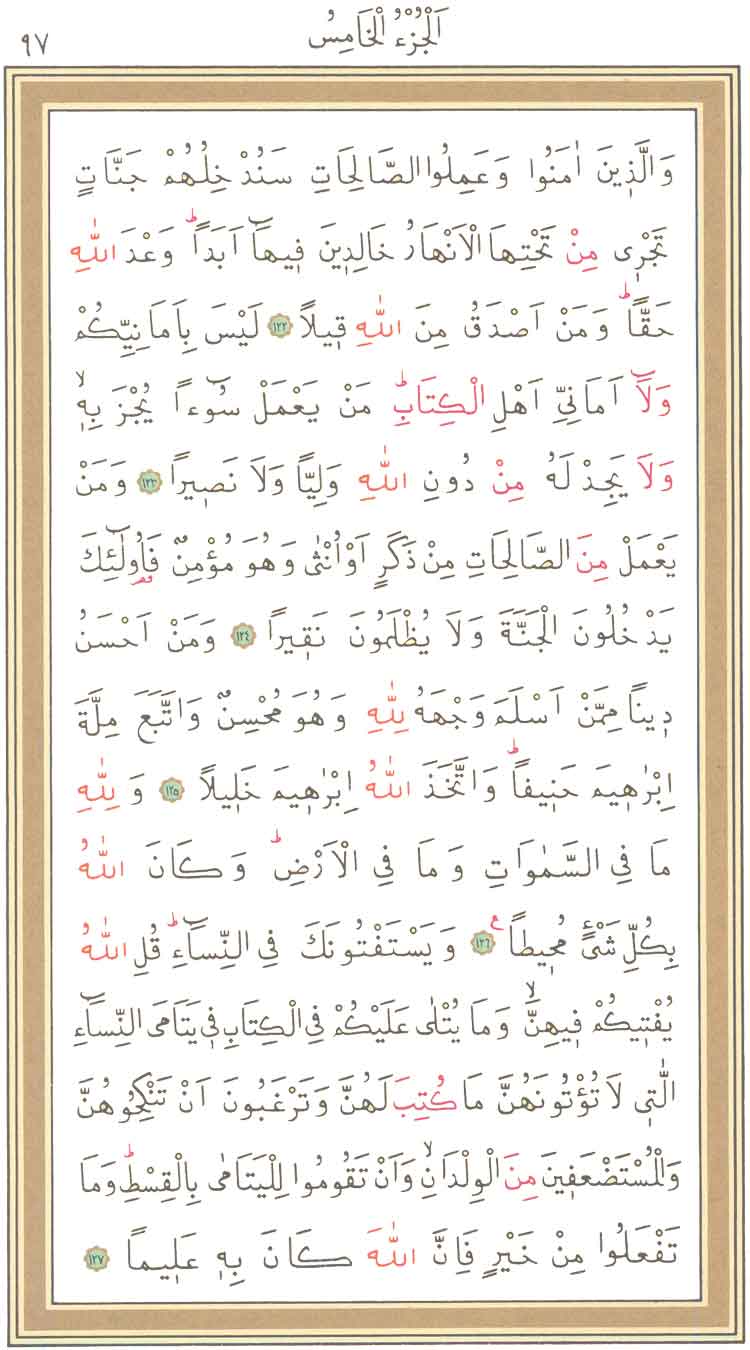 ٩٧
اَلْجُزْءُ الْخَامِسُ
وَالَّذ۪ينَ اٰمَنُوا وَعَمِلُوا الصَّالِحَاتِ سَنُدْخِلُهُمْ جَنَّاتٍ
تَجْر۪ى مِنْ تَحْتِهَا الْاَنْهَارُ خَالِد۪ينَ ف۪يهَٓا اَبَدًاۜ وَعْدَ اللّٰهِ
حَقًّاۜ وَمَنْ اَصْدَقُ مِنَ اللّٰهِ ق۪يلًا ﴿١٢٢﴾ لَيْسَ بِاَمَانِيِّكُمْ
وَلَٓا اَمَانِيِّ اَهْلِ الْكِتَابِۜ مَنْ يَعْمَلْ سُٓوءًا يُجْزَ بِه۪ۙ
وَلَا يَجِدْ لَهُ مِنْ دُونِ اللّٰهِ وَلِيًّا وَلَا نَص۪يرًا ﴿١٢٣﴾ وَمَنْ
يَعْمَلْ مِنَ الصَّالِحَاتِ مِنْ ذَكَرٍ اَوْ اُنْثٰى وَهُوَ مُؤْمِنٌ فَاُو۬لٰٓئِكَ
يَدْخُلُونَ الْجَنَّةَ وَلَا يُظْلَمُونَ نَق۪يرًا ﴿١٢٤﴾ وَمَنْ اَحْسَنُ
د۪ينًا مِمَّنْ اَسْلَمَ وَجْهَهُ لِلّٰهِ وَهُوَ مُحْسِنٌ وَاتَّبَعَ مِلَّةَ
اِبْرٰه۪يمَ حَن۪يفًاۜ وَاتَّخَذَ اللّٰهُ اِبْرٰه۪يمَ خَل۪يلًا ﴿١٢٥﴾ وَلِلّٰهِ
مَا فِي السَّمٰوَاتِ وَمَا فِي الْاَرْضِۜ وَكَانَ اللّٰهُ
بِكُلِّ شَيْءٍ مُح۪يطًا۟ ﴿١٢٦﴾ وَيَسْتَفْتُونَكَ فِي النِّسَٓاءِۜ قُلِ اللّٰهُ
يُفْت۪يكُمْ ف۪يهِنَّۙ وَمَا يُتْلٰى عَلَيْكُمْ فِي الْكِتَابِ ف۪ي يَتَامَى النِّسَٓاءِ
الّٰت۪ي لَا تُؤْتُونَهُنَّ مَا كُتِبَ لَهُنَّ وَتَرْغَبُونَ اَنْ تَنْكِحُوهُنَّ
وَالْمُسْتَضْعَف۪ينَ مِنَ الْوِلْدَانِۙ وَاَنْ تَقُومُوا لِلْيَتَامٰى بِالْقِسْطِۜ وَمَا
تَفْعَلُوا مِنْ خَيْرٍ فَاِنَّ اللّٰهَ كَانَ بِه۪ عَل۪يمًا ﴿١٢٧﴾